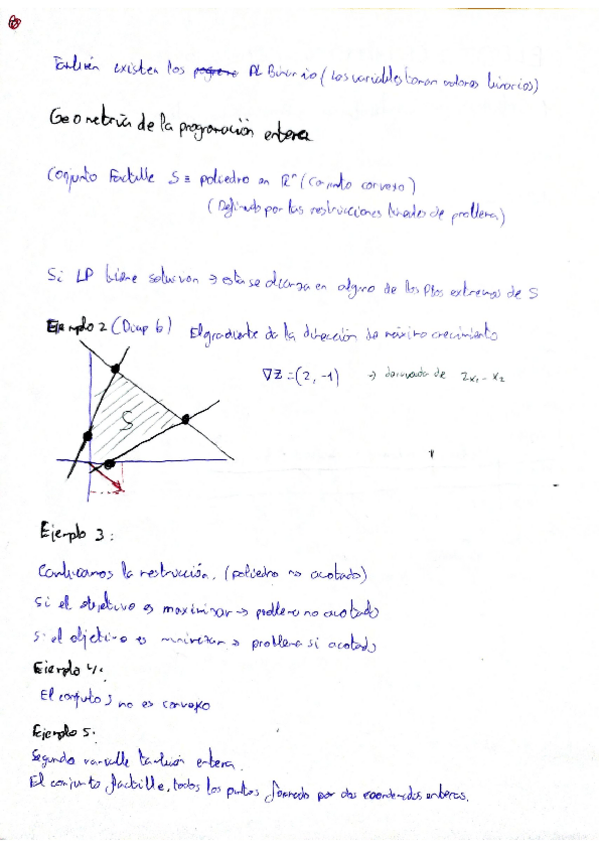 También existen los PL Binario (Las variables toman valores binarios)
Geometría de la programación entera
Conjunto Factible S ≡ poliedro en Rⁿ (Conjunto convexo)
(Definido por las restricciones lineales de problema)
Si LP tiene solución → esta se alcanza en alguno de los Ptos extremos de S
Ejemplo 2 (Diap 6) El gradiente da la dirección de máximo crecimiento
∇Z = (2, -1) → derivada de 2x₁ - x₂
S
Ejemplo 3:
Cambiamos la restricción. (poliedro no acotado)
Si el objetivo es maximizar → problema no acotado
Si el objetivo es minimizar → problema si acotado
Ejemplo 4:
El conjuto S no es convexo
Ejemplo 5:
Segundo variable también entera.
El conjunto factible, todos los puntos formado por dos coordenadas enteras.